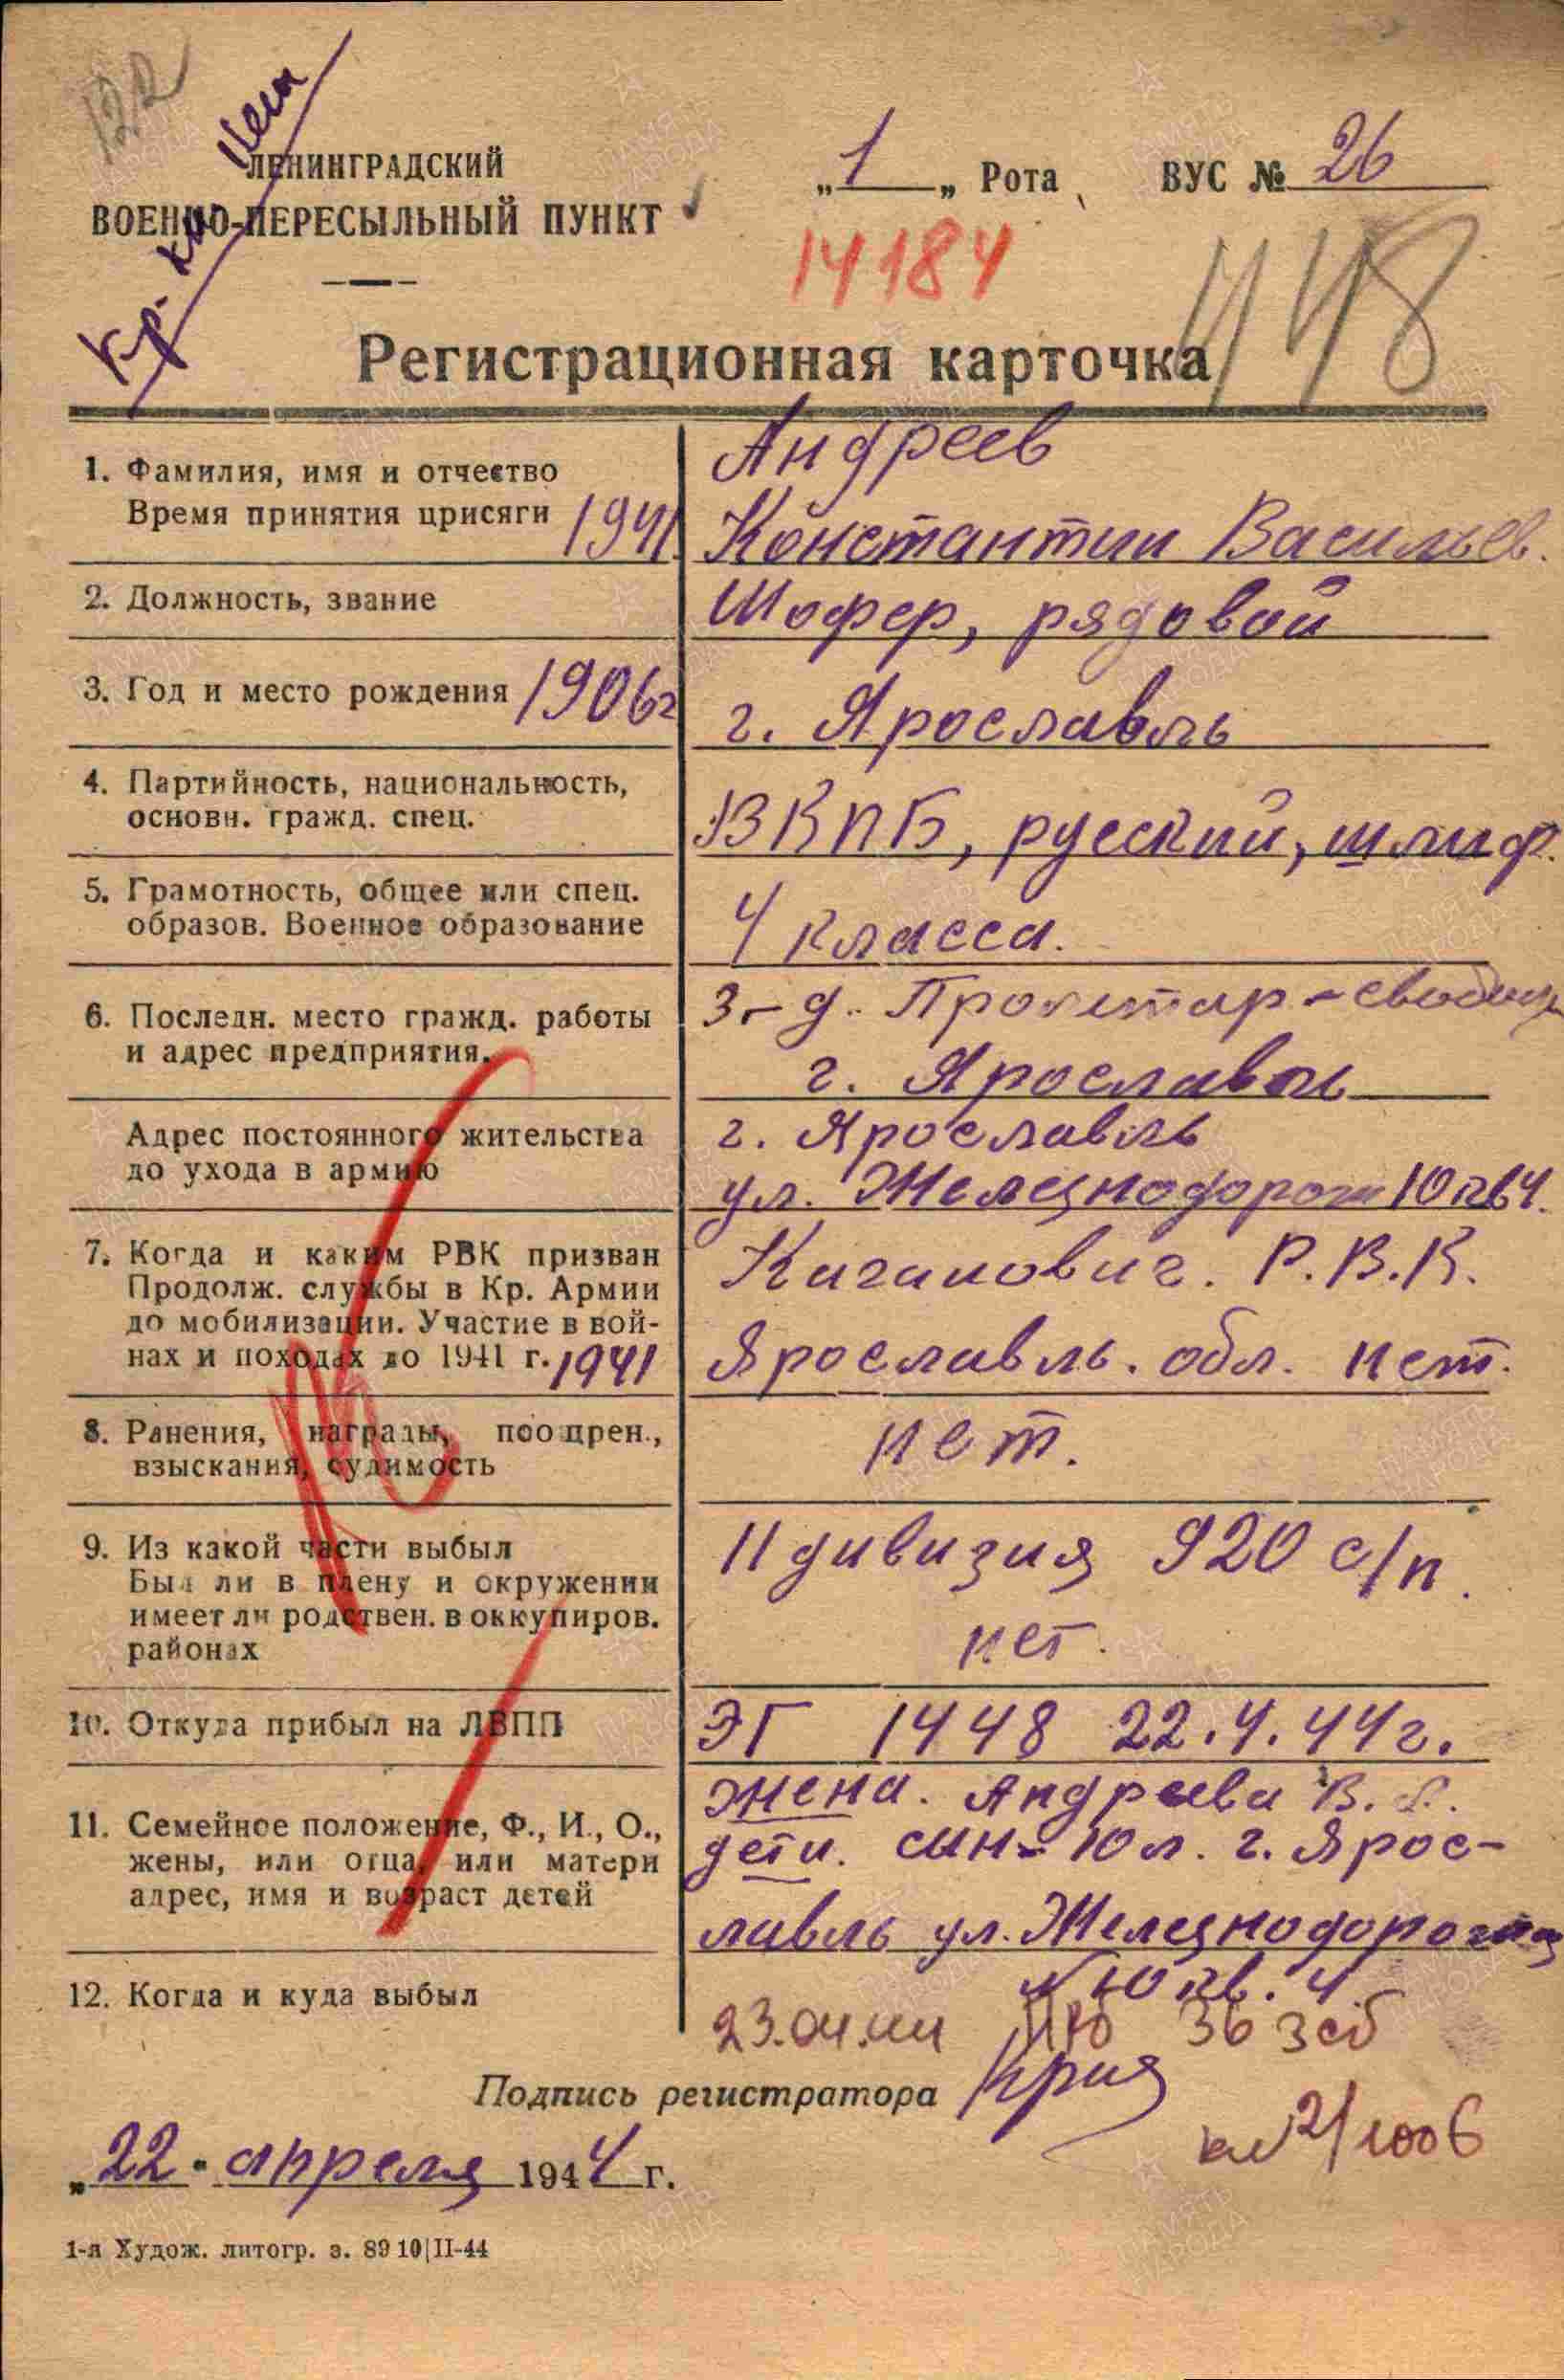 122
Кр. кн. нет
ЛЕНИНГРАДСКИЙ
ВОЕННО-ПЕРЕСЫЛЬНЫЙ ПУНКТ
„ 1 „ Рота
ВУС № 26
14184
448
Регистрационная карточка
1. Фамилия, имя и отчество
Время принятия присяги 1941.
Андреев
Константин Васильев.
2. Должность, звание
Шофер, рядовой
3. Год и место рождения 1906г
г. Ярославль
4. Партийность, национальность,
основн. гражд. спец.
ВКПБ, русский, шлиф.
5. Грамотность, общее или спец.
образов. Военное образование
4 класса.
6. Последн. место гражд. работы
и адрес предприятия.
З-д. Пролетар-свобода
г. Ярославль
Адрес постоянного жительства
до ухода в армию
г. Ярославль
ул. Железнодорож 10 кв 4.
7. Когда и каким РВК призван
Продолж. службы в Кр. Армии
до мобилизации. Участие в вой-
нах и походах до 1941 г. 1941
Каганович. Р.В.К.
Ярославль. обл. нет.
8. Ранения, награды, поощрен.,
взыскания, судимость
нет.
9. Из какой части выбыл
Был ли в плену и окружении
имеет ли родствен. в оккупиров.
районах
11 дивизия 920 с/п.
нет.
10. Откуда прибыл на ЛВПП
ЭГ 1448 22.4.44г.
11. Семейное положение, Ф., И., О.,
жены, или отца, или матери
адрес, имя и возраст детей
жена. Андреева В.
дети. сын-10л. г. Ярос-
лавль ул. Железнодорожная
N 10 кв. 4.
12. Когда и куда выбыл
23.04.44 36 зсб
Подпись регистратора
21/1006
„ 22 " апреля 1944 г.
1-я Худож. литогр. з. 89 10|II-44